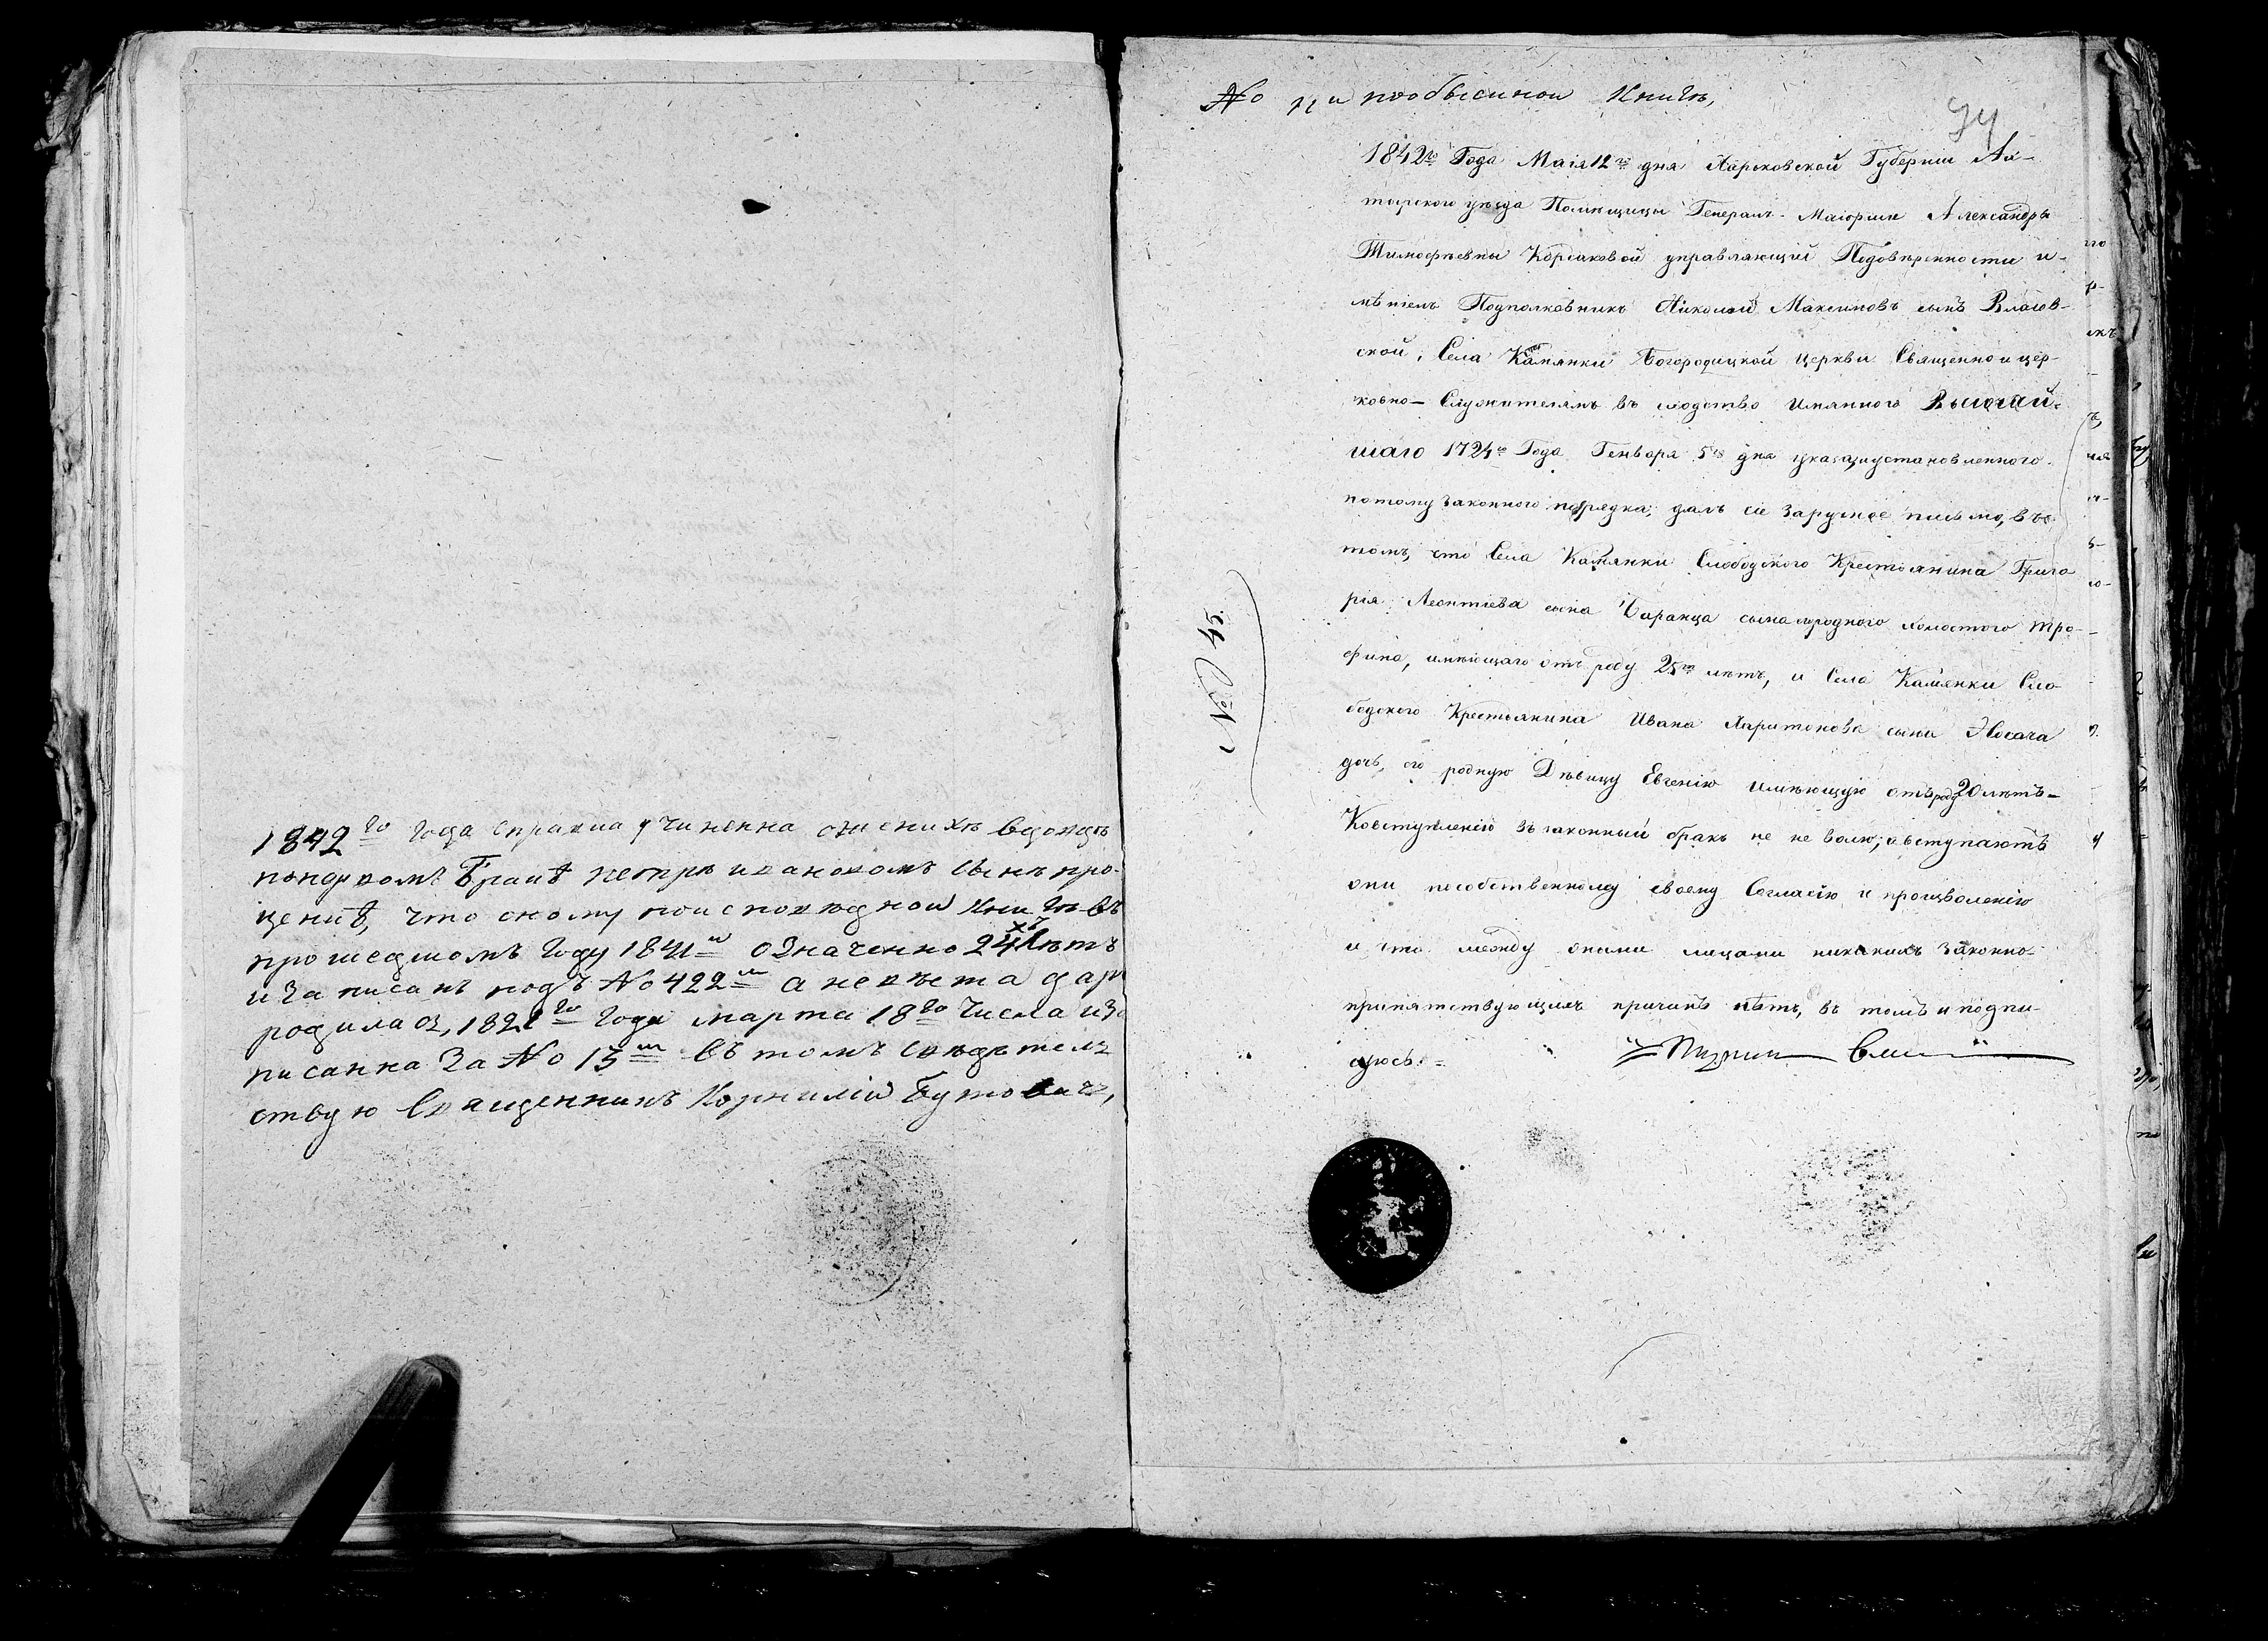 1842го года справка учиненна о женихѣ вдовцѣ
попервомъ Бракѣ петрѣ ивановомъ сынѣ про-
ценкѣ, что оному поисповѣдной книгѣ въ
прошедшомъ Году 1841м означенно 24хъ лѣтъ
и записанъ подъ No 422м а невѣста дар
родилась, 1821го года марта 18го числа и за
писанна За No 13м въ томъ свидѣтель
ствую Священникъ Корнилій Бутович,
No по обыскной Книгѣ,
94
1842го Года Маія 12го дня Харьковской Губерніи Ах-
тырского уѣзда Помѣщицы Генералъ-Маіорши Александры
Тимофѣевны Корсаковой управляющій Подовѣренности и-
мѣніемъ Подполковникъ Николай Максимовъ сынъ
ской, Села Камянки Богородицкой церкви Священно и цер-
ковно-Служителямъ въ слѣдство Имянного Высочай-
шаго 1724го Года Генваря 5го дня указа, и установленного
потому законного порядка, далъ сіе Заручное письмо, въ
томъ, что Села Камянки Слободского Крестьянина Григо
рія Леонтіева сына сына породного холостого Тро-
фима, имѣющаго отъ роду 25ть лѣтъ, и Села Камянки Сло-
бодского Крестьянина Ивана Харитонова сына Носача
дочь, его родную Дѣвицу Евгенію имѣющую отъ роду 20 лѣтъ-
Ковступленію въ законный бракъ не не волю; а вступаютъ
они пособственному своему Согласію и произволенію
и что между оными лицами никакихъ Законно-
припятствующихъ причинъ нѣтъ, въ томъ и подпи-
суюсь. =
No 45.